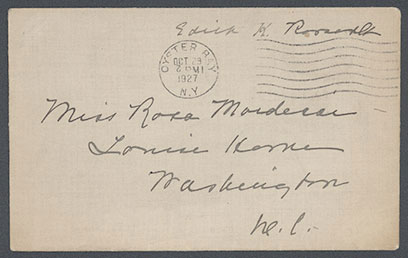 Edith K. Roosevelt
OYSTER BAY
OCT 29
M
1927
N.Y.
Miss Rosa Mordecai
Louise Home
Washington
D.C.